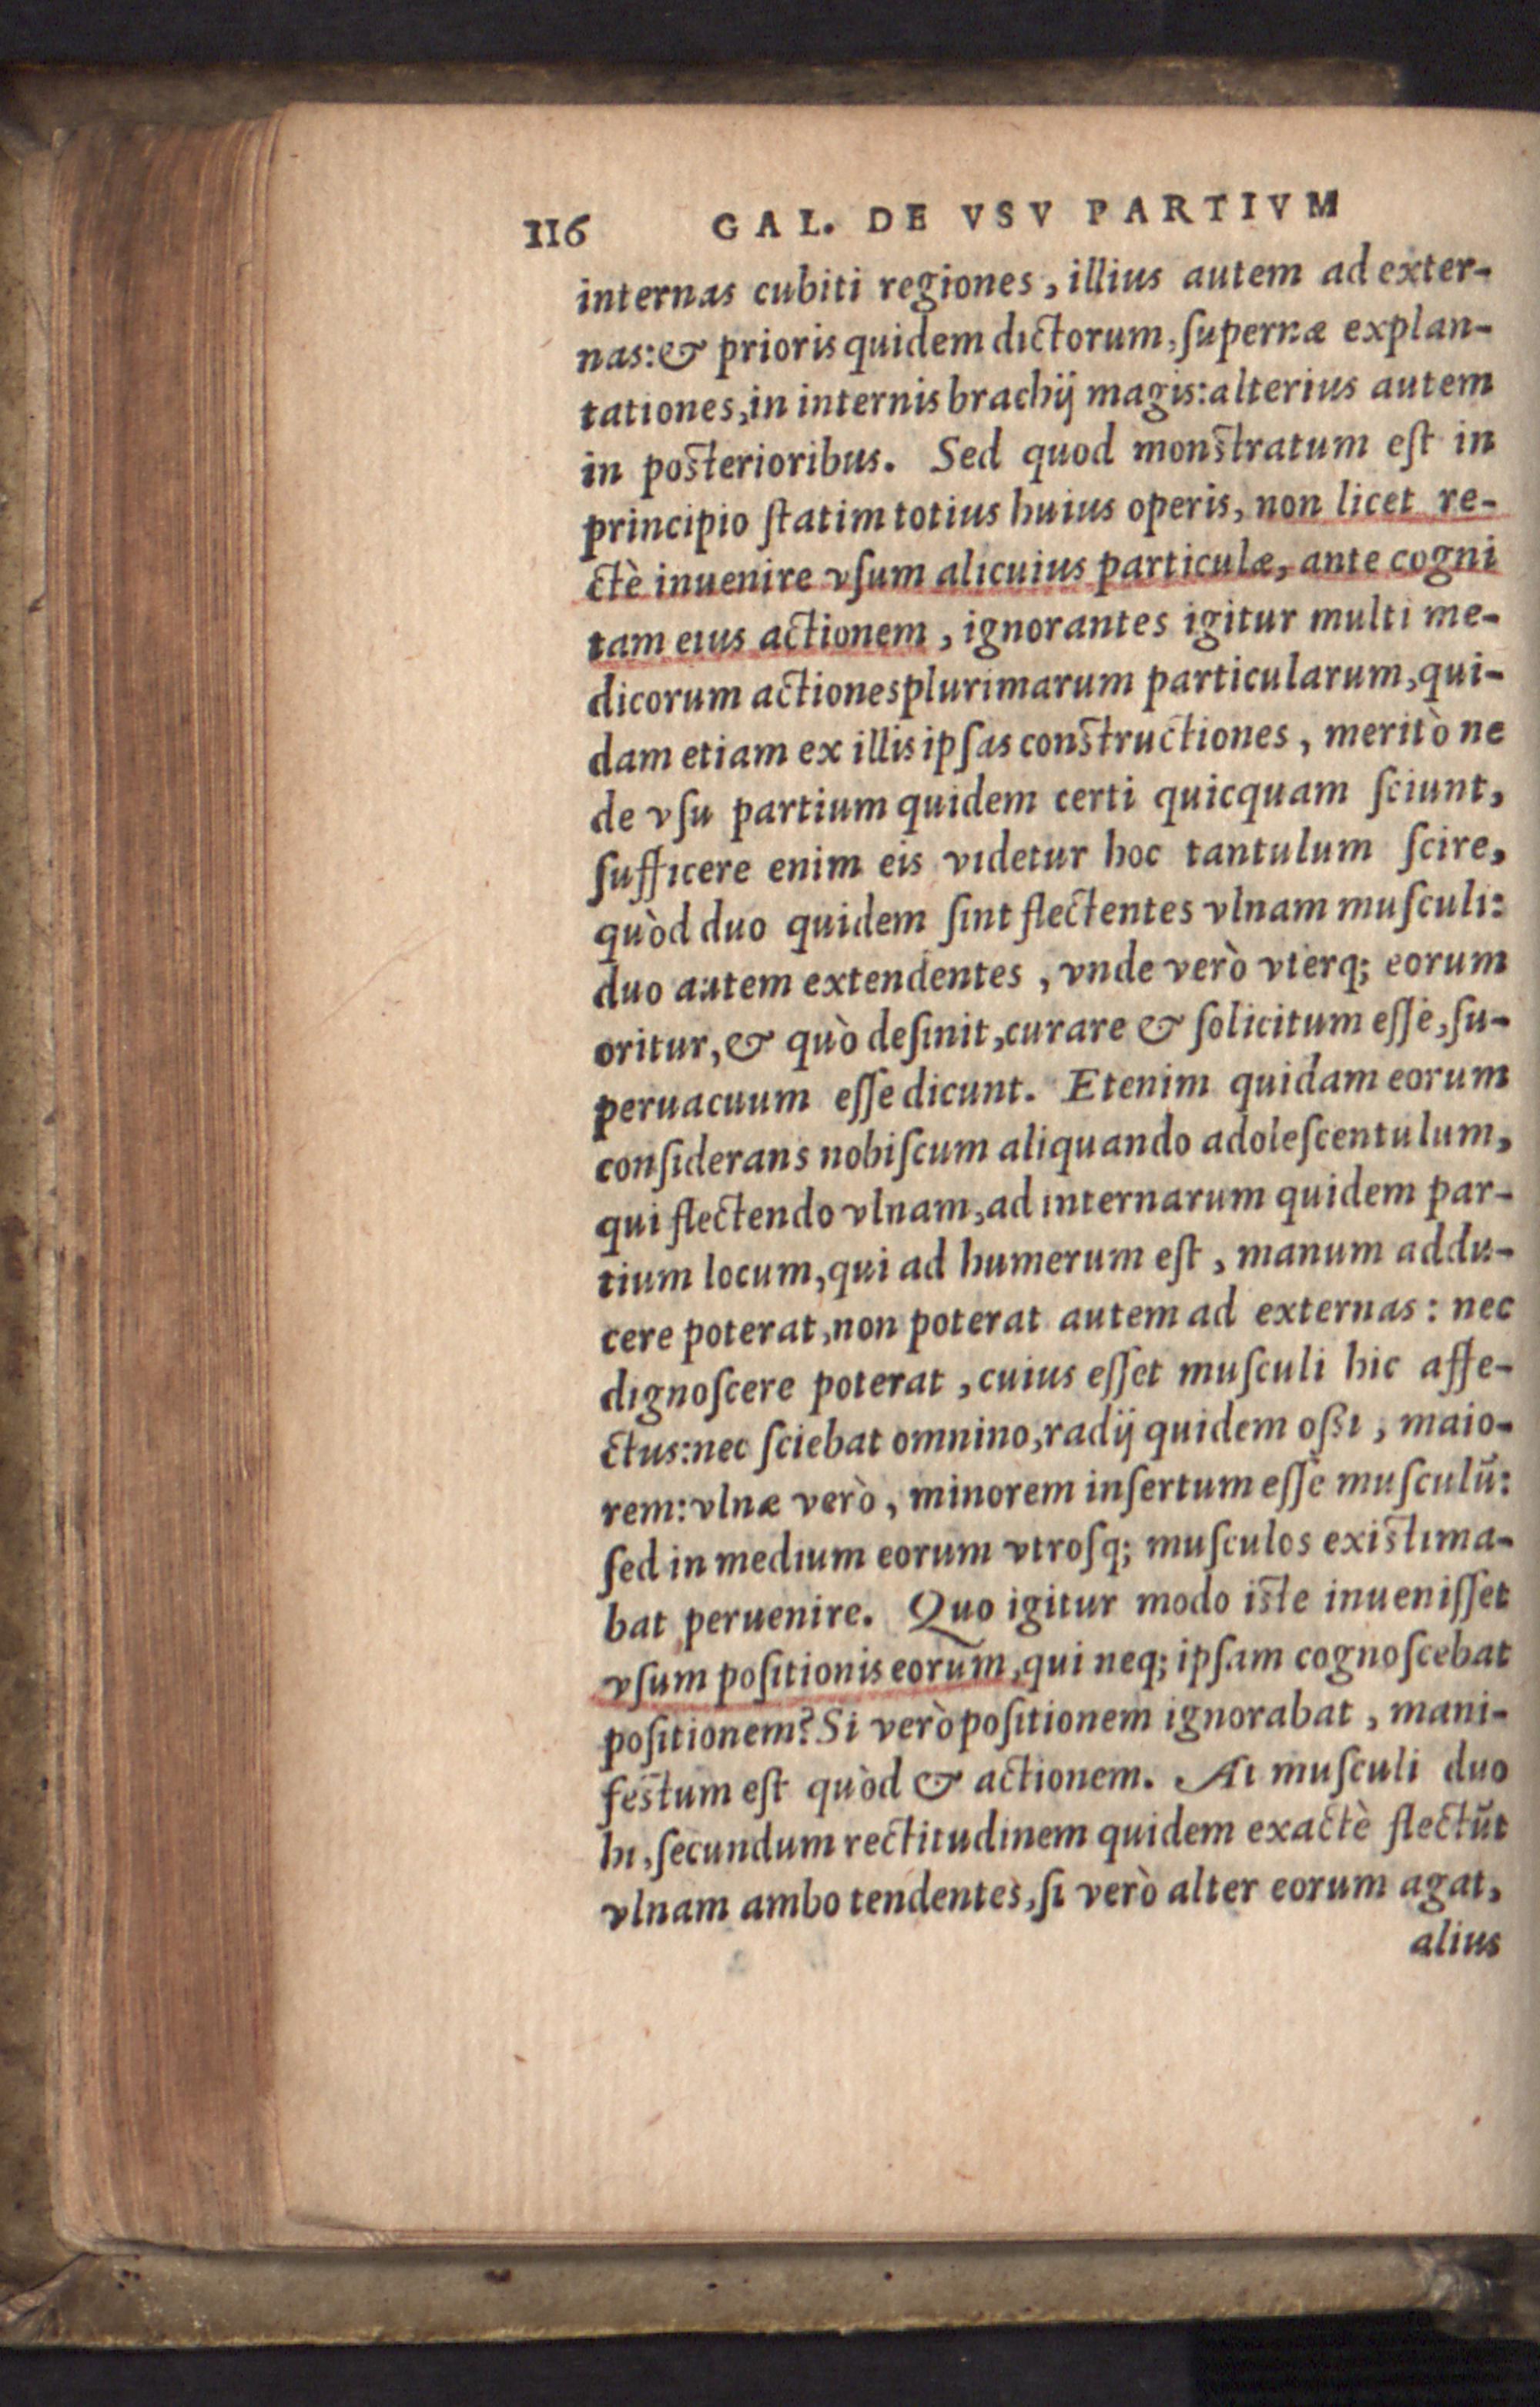 116 GAL. DE VSV PARTIVM
internas cubiti regiones, illius autem ad exter-
nas: & prioris quidem dictorum, ſupernæ explan-
tationes, in internis brachij magis: alterius autem
in posterioribus. Sed quod monstratum eſt in
principio ſtatim totius huius operis, non licet re-
ctè inuenire vſum alicuius particulæ, ante cogni
tam eius actionem, ignorantes igitur multi me-
dicorum actiones plurimarum particularum, qui-
dam etiam ex illis ipſas constructiones, meritò ne
de vſu partium quidem certi quicquam ſciunt,
ſufficere enim eis videtur hoc tantulum ſcire,
quòd duo quidem ſint flectentes vlnam muſculi:
duo autem extendentes, vnde verò vterq; eorum
oritur, & quò deſinit, curare & ſolicitum eſſe, ſu-
peruacuum eſſe dicunt. Etenim quidam eorum
conſiderans nobiſcum aliquando adoleſcentulum,
qui flectendo vlnam, ad internarum quidem par-
tium locum, qui ad humerum eſt, manum addu-
cere poterat, non poterat autem ad externas: nec
dignoſcere poterat, cuius eſſet muſculi hic affe-
ctus: nec ſciebat omnino, radij quidem oßi, maio-
rem: vlnæ verò, minorem inſertum eſſe muſculū:
ſed in medium eorum vtroſq; muſculos existima-
bat peruenire. Quo igitur modo iste inueniſſet
vſum poſitionis eorum, qui neq; ipſam cognoſcebat
poſitionem? Si verò poſitionem ignorabat, mani-
festum eſt quòd & actionem. At muſculi duo
hi, ſecundum rectitudinem quidem exactè flectūt
vlnam ambo tendentes, ſi verò alter eorum agat,
alius